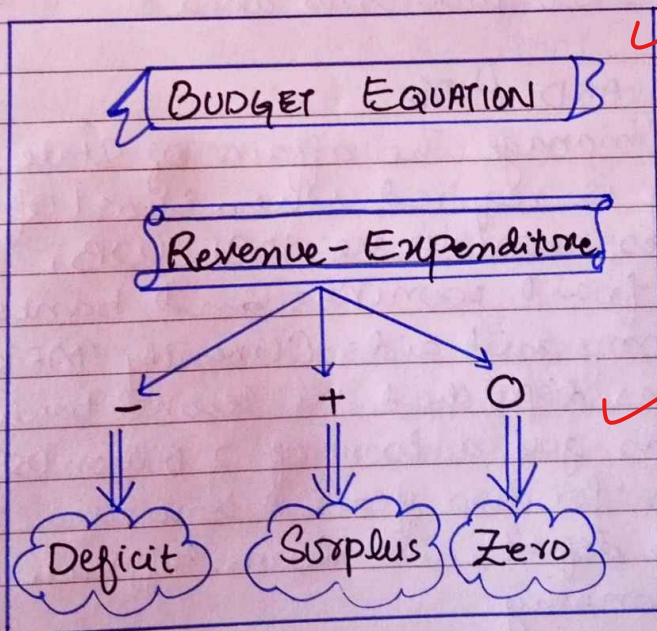 BUDGET EQUATION
Revenue - Expenditure
- + 0
Deficit Surplus Zero